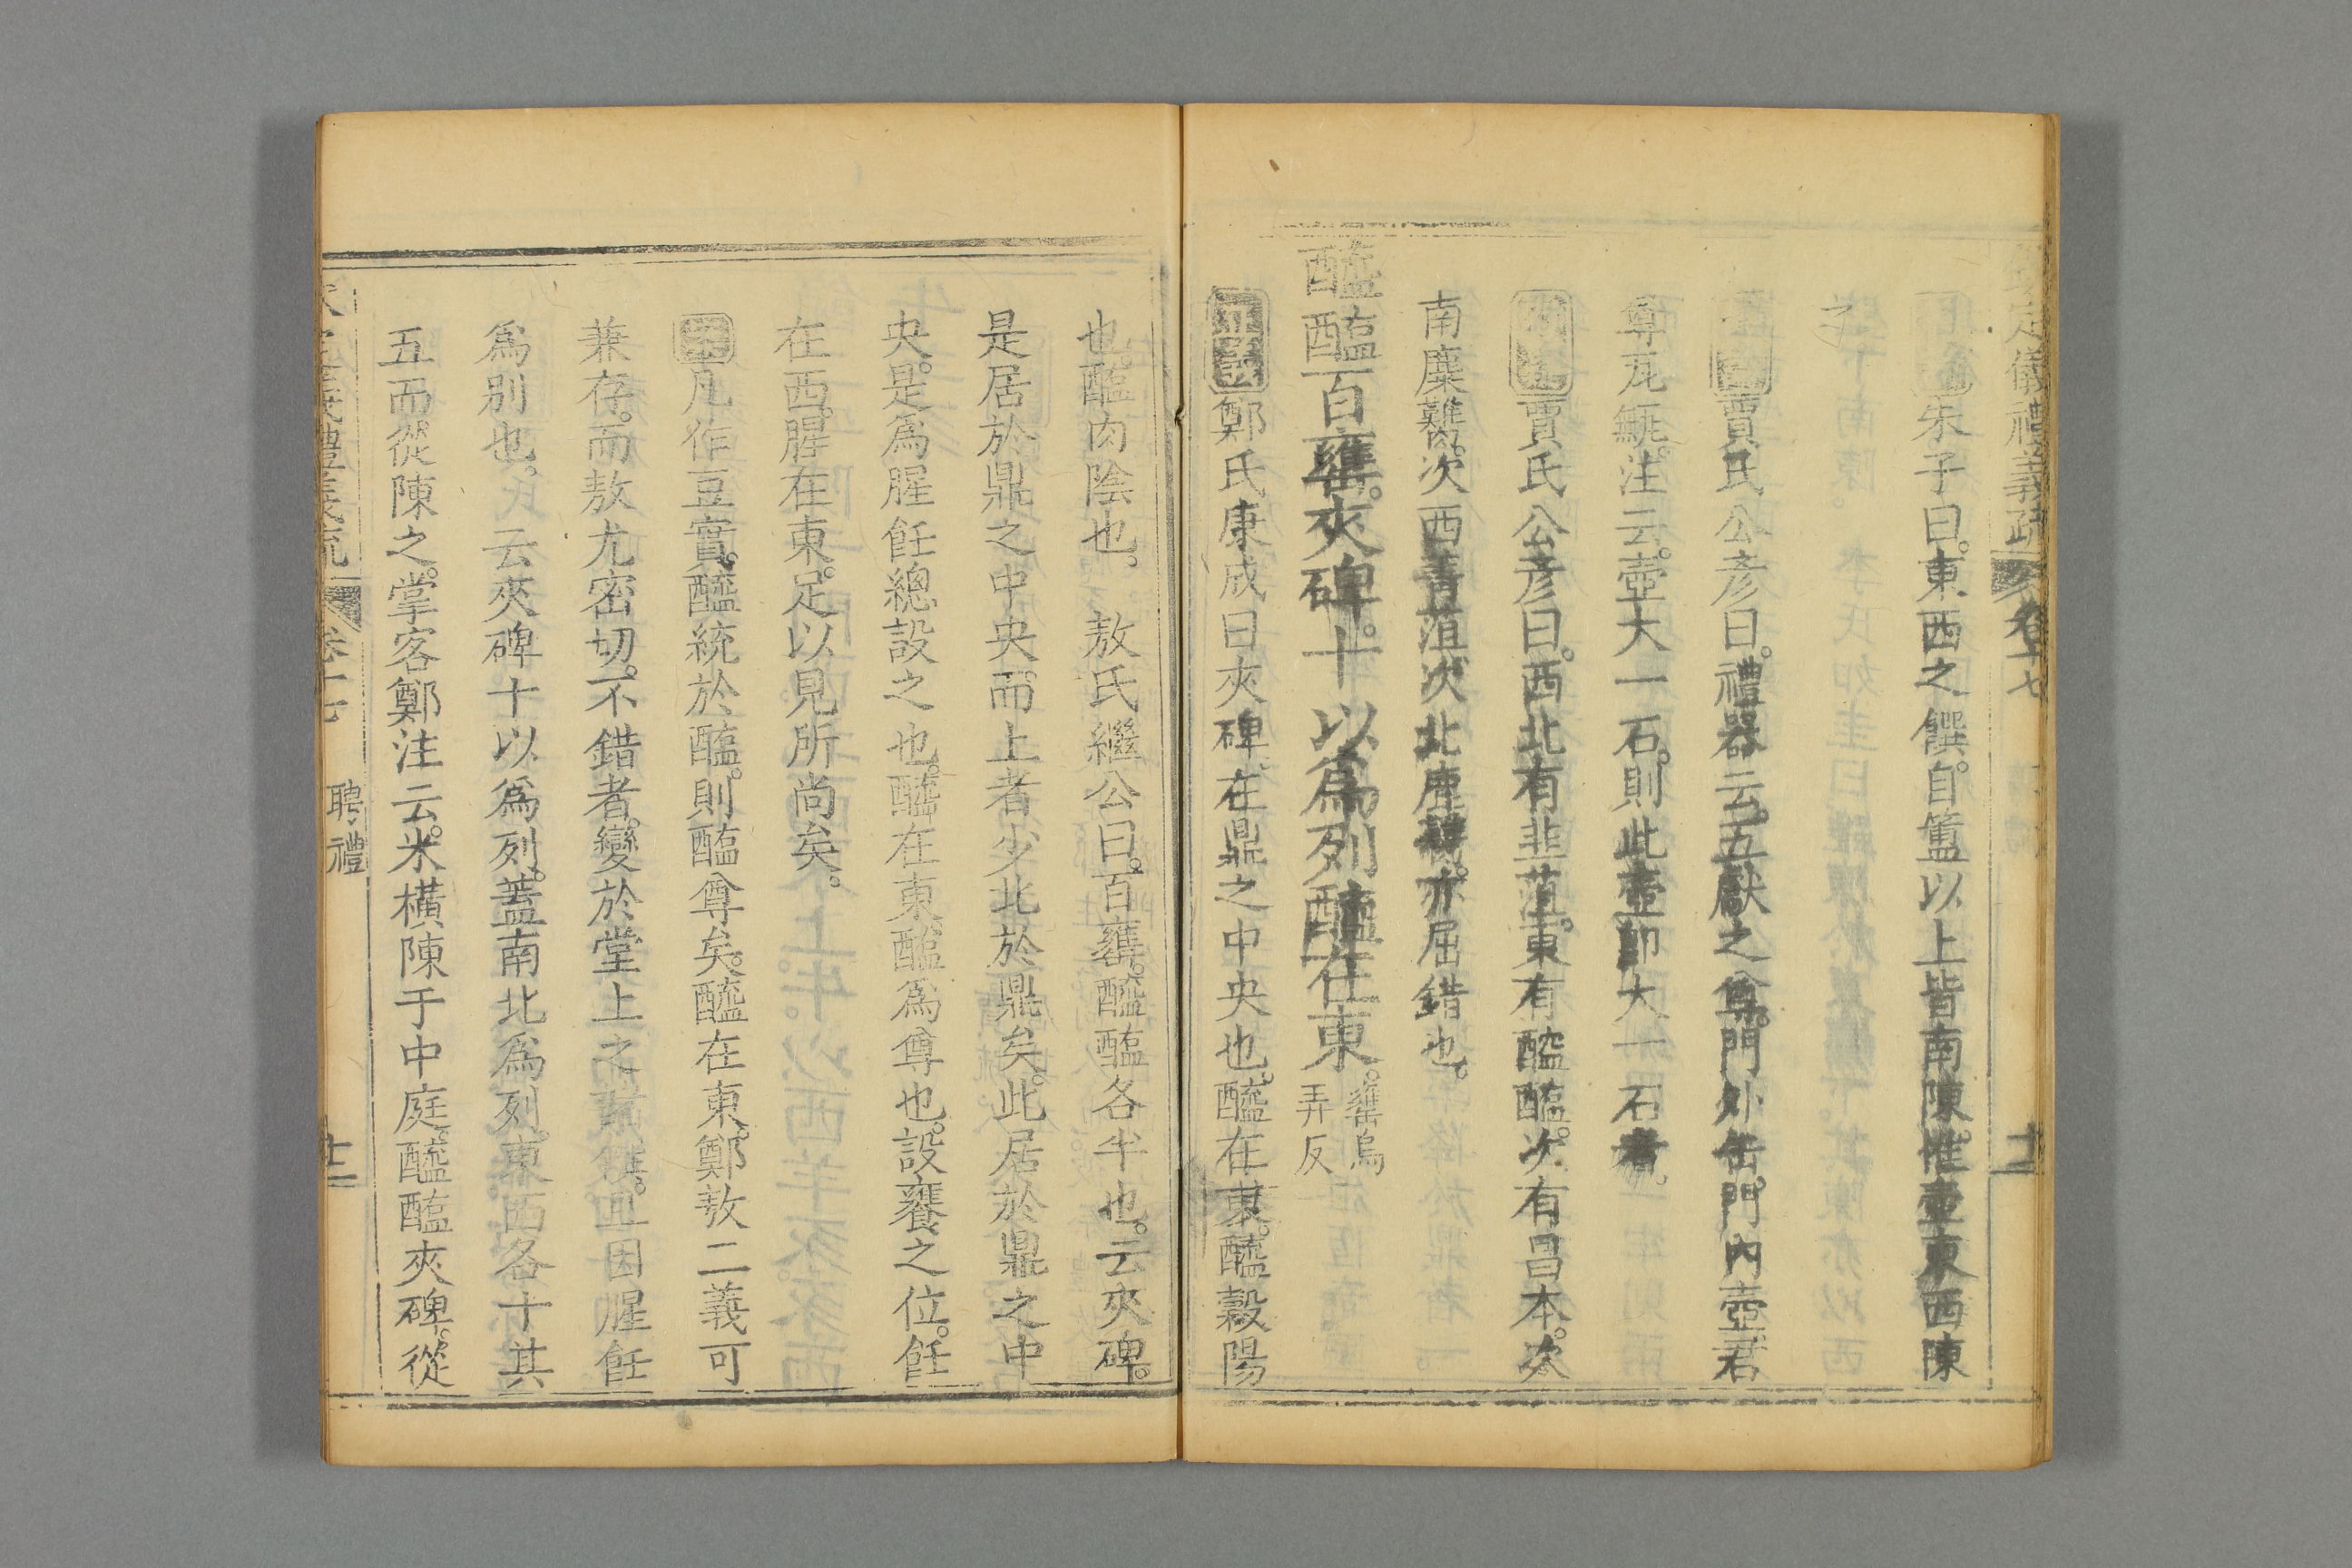 定儀禮義疏 卷十七
朱子曰。東西之饌。自簠以上皆南陳。惟壺東西陳
之
賈氏公彥曰。禮器云。五獻之尊。門外缶。門內壺。君
尊瓦甒。注云。壺大一石。則此壺即大一石者。
賈氏公彥曰。西北有韭菹。東有醓醢。次有昌本。次
南麋臡。次西菁菹。次北鹿臡。亦屈錯也。
醯醢百罋。夾碑。十以爲列。醯在東。罋烏弄反
鄭氏康成曰夾碑在鼎之中央也。醯在東。醯穀陽
也。醢肉陰也。 敖氏繼公曰。百罋。醯醢各半也。云夾碑。
是居於鼎之中央。而上者少北於鼎矣。此居於鼎之中
央。是爲腥飪總設之也。醯在東醯爲尊也。設饔之位。飪
在西。腥在東。足以見所尚矣。
凡作豆實。醯統於醢。則醢尊矣。醯在東。鄭敖二義可
兼存。而敖尤密切。不錯者。變於堂上之 且因腥飪
爲別也。 云夾碑十以爲列。蓋南北爲列。東西各十其
五而從陳之。掌客鄭注云。米橫陳于中庭。醯醢夾碑。從
卷十七 聘禮